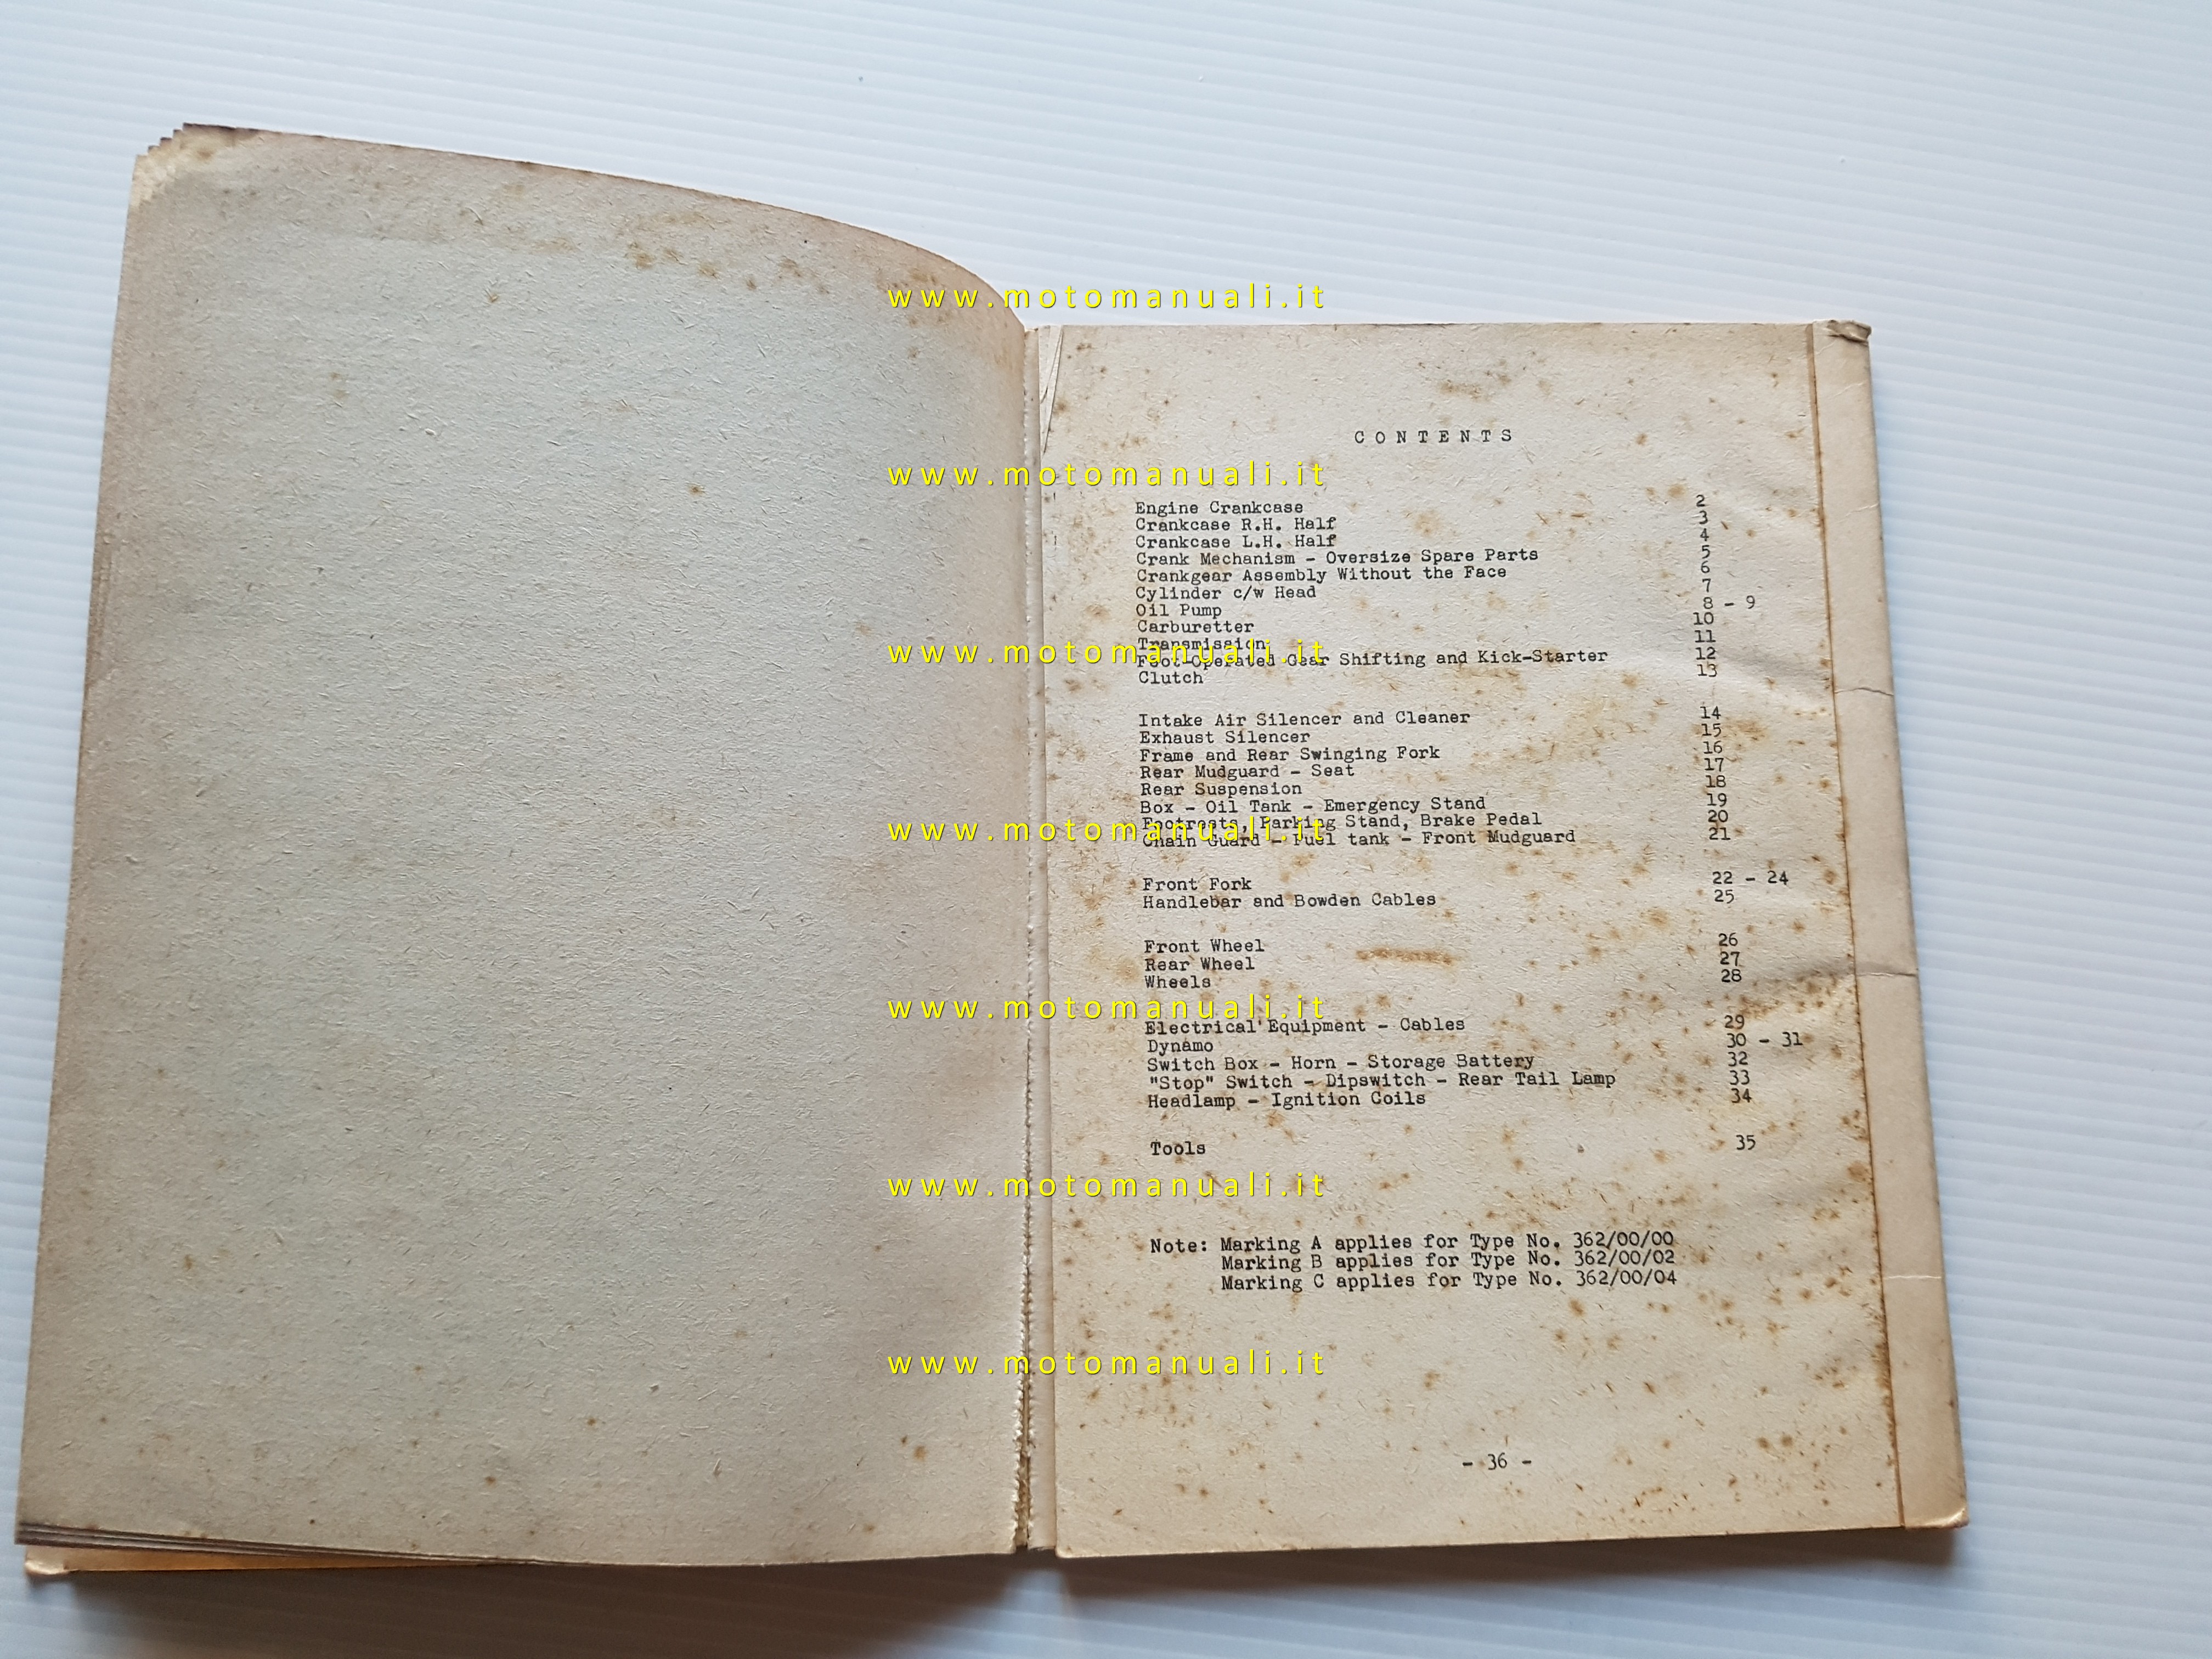 www.motomanuali.it
CONTENTS
www.motomanuali.it
Engine Crankcase 2
Crankcase R.H. Half 3
Crankcase L.H. Half 4
Crank Mechanism - Oversize Spare Parts 5
Crankgear Assembly Without the Face 6
Cylinder c/w Head 7
Oil Pump 8 - 9
Carburetter 10
Transmission 11
www.motomanuali.it
Foot-Operated Gear Shifting and Kick-Starter 12
Clutch 13
Intake Air Silencer and Cleaner 14
Exhaust Silencer 15
Frame and Rear Swinging Fork 16
Rear Mudguard - Seat 17
Rear Suspension 18
Box - Oil Tank - Emergency Stand 19
Footrests, Parking Stand, Brake Pedal 20
www.motomanuali.it
Chain Guard - Fuel tank - Front Mudguard 21
Front Fork 22 - 24
Handlebar and Bowden Cables 25
Front Wheel 26
Rear Wheel 27
Wheels 28
www.motomanuali.it
Electrical Equipment - Cables 29
Dynamo 30 - 31
Switch Box - Horn - Storage Battery 32
"Stop" Switch - Dipswitch - Rear Tail Lamp 33
Headlamp - Ignition Coils 34
Tools 35
www.motomanuali.it
Note: Marking A applies for Type No. 362/00/00
Marking B applies for Type No. 362/00/02
Marking C applies for Type No. 362/00/04
www.motomanuali.it
- 36 -